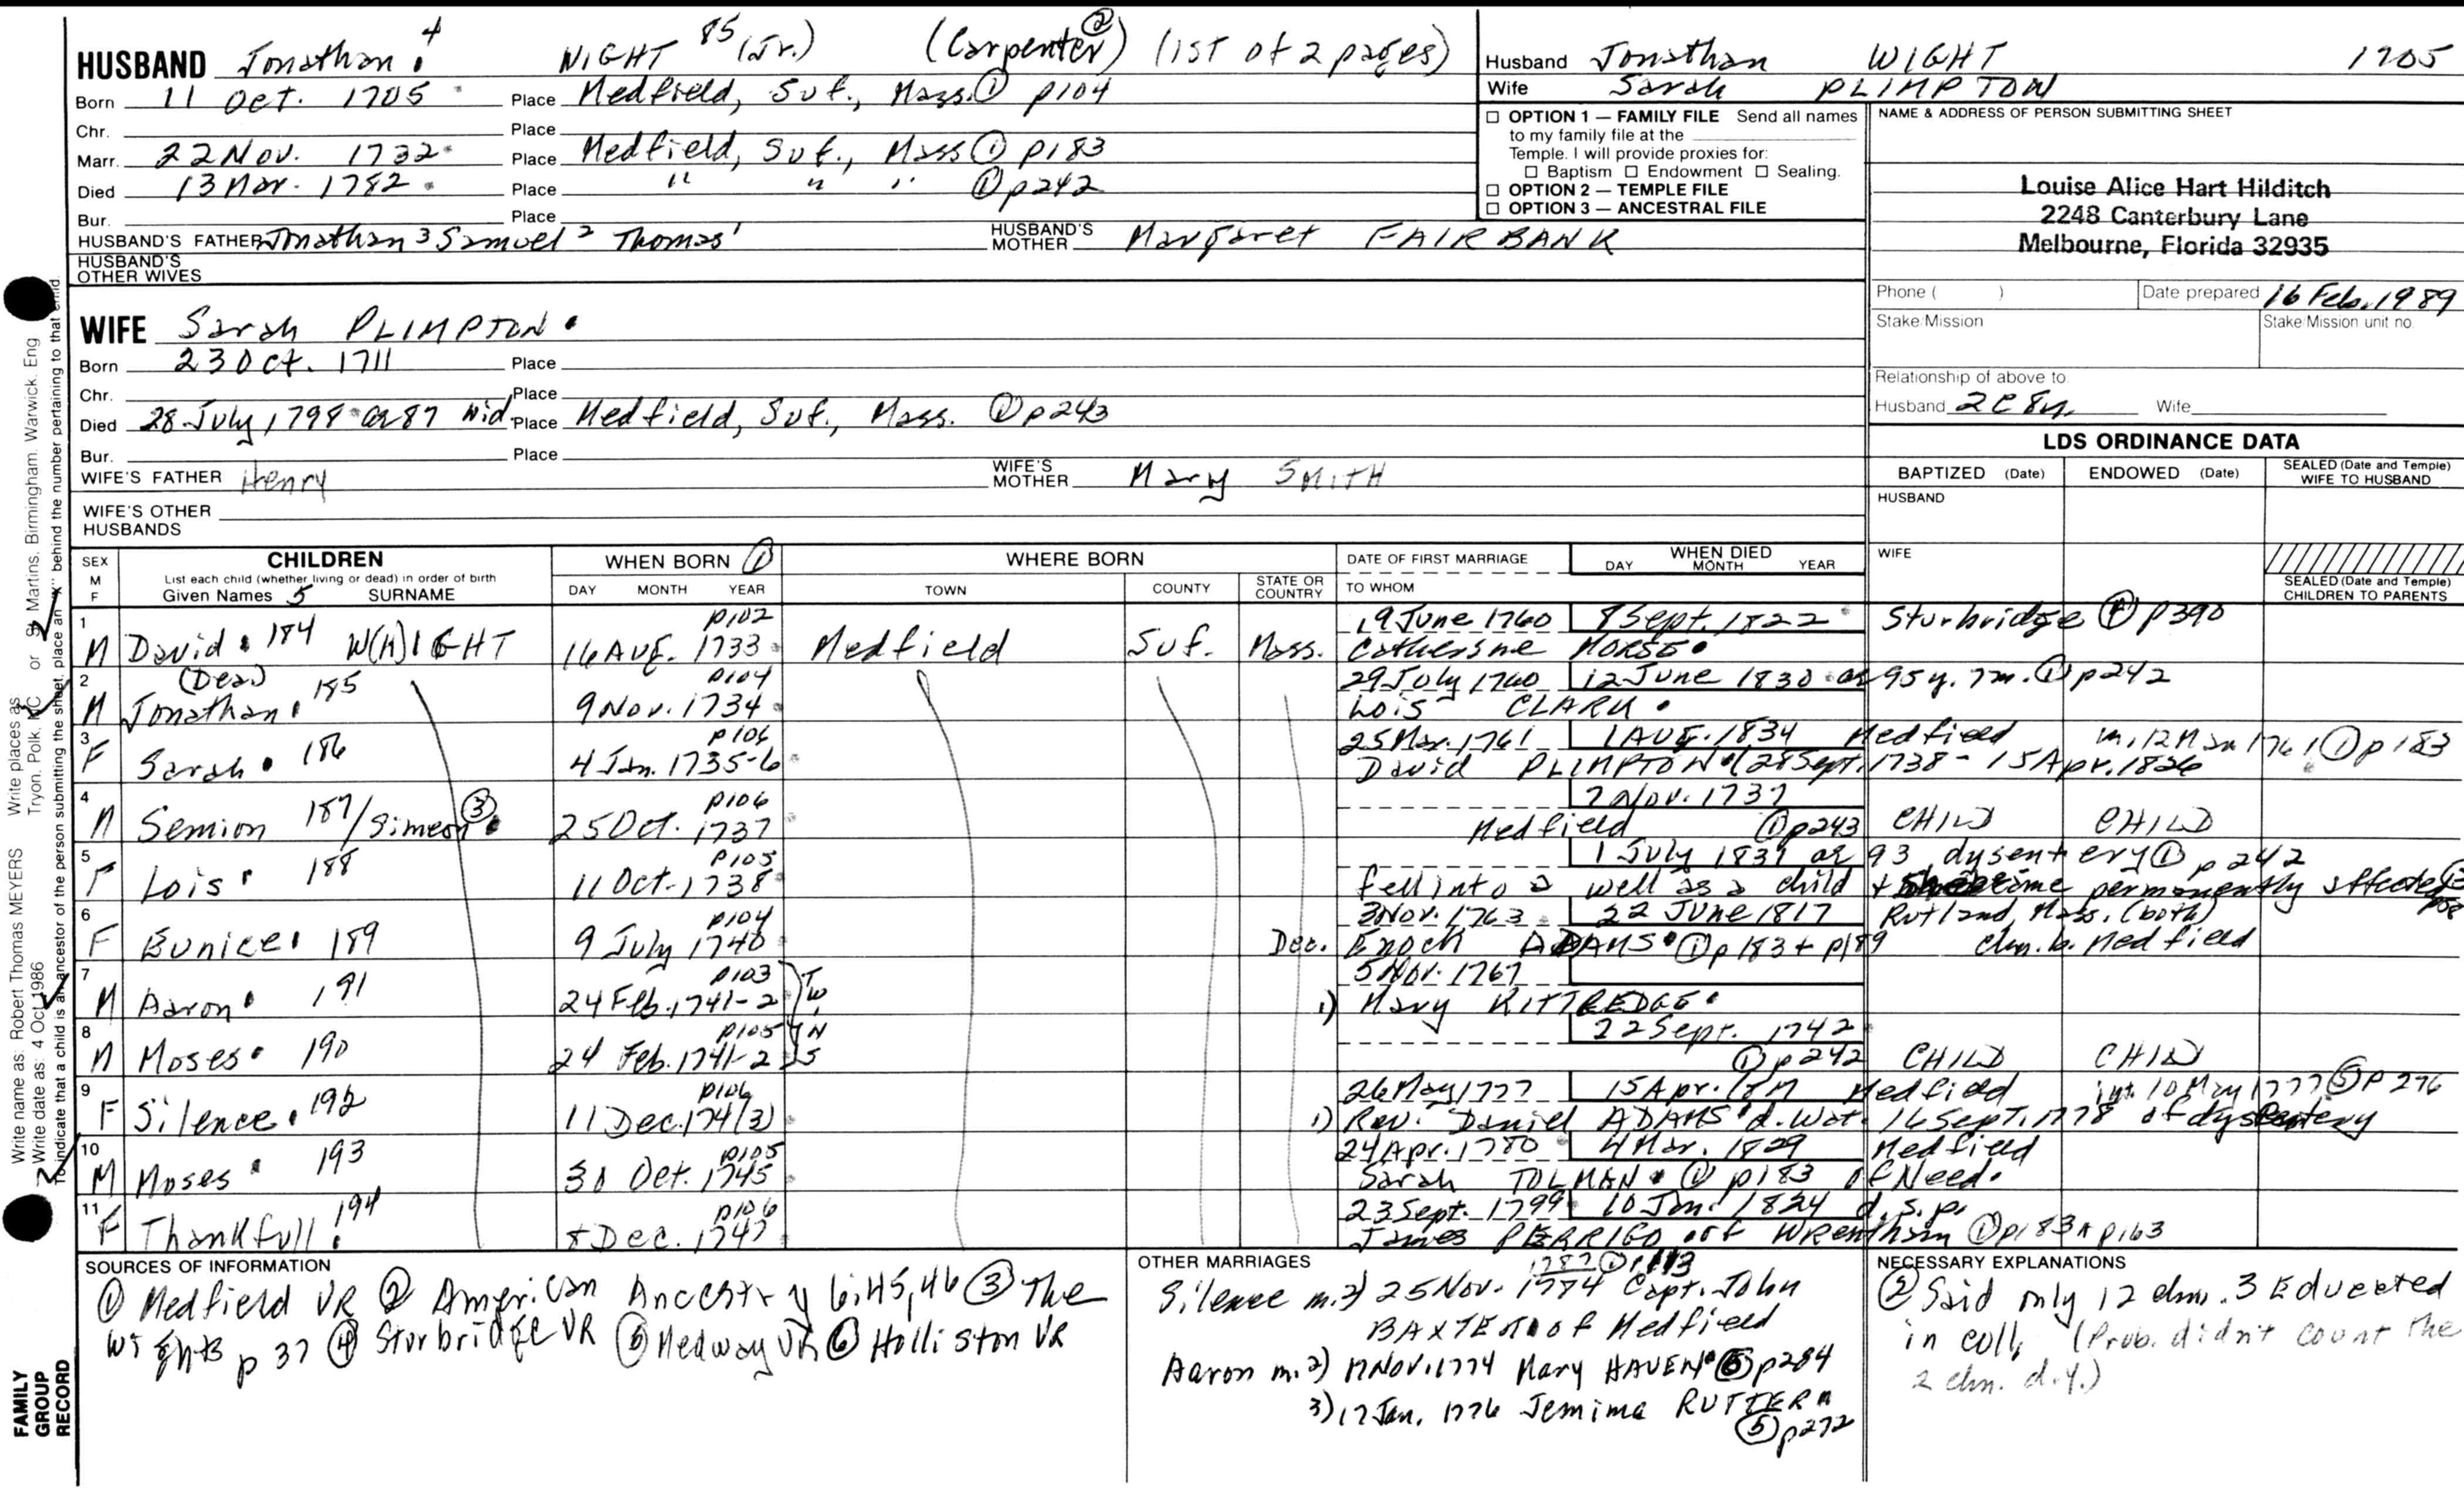 HUSBAND Jonathan 4 WIGHT 85 (Jr.) (Carpenter ②) (1st of 2 pages)
Born 11 Oct. 1705 Place Medfield, Suf., Mass. ① p104
Chr. Place
Marr. 22 Nov. 1732 Place Medfield, Suf., Mass ① p183
Died 13 Mar. 1782 Place " " " ① p242
Bur. Place
HUSBAND'S FATHER Jonathan 3 Samuel 2 Thomas 1 HUSBAND'S MOTHER Margaret FAIRBANK
HUSBAND'S OTHER WIVES
Husband Jonathan WIGHT 1705
Wife Sarah PLIMPTON
☐ OPTION 1 — FAMILY FILE Send all names
to my family file at the
Temple. I will provide proxies for:
☐ Baptism ☐ Endowment ☐ Sealing.
☐ OPTION 2 — TEMPLE FILE
☐ OPTION 3 — ANCESTRAL FILE
NAME & ADDRESS OF PERSON SUBMITTING SHEET
Louise Alice Hart Hilditch
2248 Canterbury Lane
Melbourne, Florida 32935
Phone ( ) Date prepared 16 Feb. 1989
Stake/Mission Stake/Mission unit no.
Relationship of above to:
Husband 2C 8G Wife
WIFE Sarah PLIMPTON
Born 23 Oct. 1711 Place
Chr. Place
Died 28 July 1798 ae 87 wid. Place Medfield, Suf., Mass. ① p243
Bur. Place
WIFE'S FATHER Henry WIFE'S MOTHER Mary SMITH
WIFE'S OTHER HUSBANDS
LDS ORDINANCE DATA
BAPTIZED (Date) ENDOWED (Date) SEALED (Date and Temple) WIFE TO HUSBAND
HUSBAND
WIFE
SEALED (Date and Temple) CHILDREN TO PARENTS
SEX M F CHILDREN WHEN BORN ① WHERE BORN DATE OF FIRST MARRIAGE WHEN DIED
List each child (whether living or dead) in order of birth DAY MONTH YEAR TOWN COUNTY STATE OR COUNTRY TO WHOM DAY MONTH YEAR
Given Names 5 SURNAME
1 p102 19 June 1760 8 Sept. 1822 Sturbridge ④ p390
M David 184 W(H)IGHT 16 Aug. 1733 Medfield Suf. Mass. Catherine MORSE
2 (Dea) p104 29 July 1760 12 June 1830 ae 95 y. 7m. ① p242
M Jonathan 185 9 Nov. 1734 Lois CLARK
3 p106 25 Mar. 1761 1 Aug. 1834 Medfield m. 12 Mar 1761 ① p183
F Sarah 186 4 Jan. 1735-6 David PLIMPTON (28 Sept. 1738 - 15 Apr. 1826
4 p106 7 Nov. 1737
M Semion 187/Simeon ③ 25 Oct. 1737 Medfield ① p243 CHILD CHILD
5 p105 1 July 1831 ae 93, dysentery ① p242
F Lois 188 11 Oct. 1738 fell into a well as a child + became permanently affected
6 p104 3 Nov. 1763 22 June 1817 Rutland, Mass. (both)
F Eunice 189 9 July 1740 Dec. Enoch ADAMS ① p183 + p189 chn. b. Medfield
7 p103 5 Nov. 1767
M Aaron 191 24 Feb. 1741-2 1) Mary KITTREDGE
TWINS
8 p105 22 Sept. 1742
M Moses 190 24 Feb. 1741-2 ① p242 CHILD CHILD
9 p106 26 May 1777 15 Apr. Medfield int. 10 May 1777 ⑤ p276
F Silence 192 11 Dec. 174(3) 1) Rev. Daniel ADAMS d. Wat. 16 Sept. 1778 of dysentery
10 p105 24 Apr. 1780 4 Mar. 1829 Medfield
M Moses 193 30 Oct. 1745 Sarah TOLMAN ① p183 of Need.
11 p106 23 Sept. 1799 10 Jan. 1824 d.s.p.
F Thankfull 194 8 Dec. 1747 James PERRIGO of Wrentham ① p183 p163
SOURCES OF INFORMATION
① Medfield VR ② American Ancestry 6:45,46 ③ The
Wights p 37 ④ Sturbridge VR ⑤ Medway VR ⑥ Holliston VR
OTHER MARRIAGES
1787 ① p113
Silence m. 2) 25 Nov. 1784 Capt. John
BAXTER of Medfield
Aaron m. 2) 17 Nov. 1774 Mary HAVEN ⑥ p284
3) 17 Jan. 1776 Jemima RUTTER
⑤ p272
NECESSARY EXPLANATIONS
② Said only 12 chn. 3 Educated
in coll. (Prob. didn't count the
2 chn. d.y.)
Write name as: Robert Thomas MEYERS Write places as: Tryon, Polk, NC or St Martins, Birmingham, Warwick, Eng
Write date as: 4 Oct 1986
To indicate that a child is an ancestor of the person submitting the sheet, place an "X" behind the number pertaining to that child.
FAMILY
GROUP
RECORD